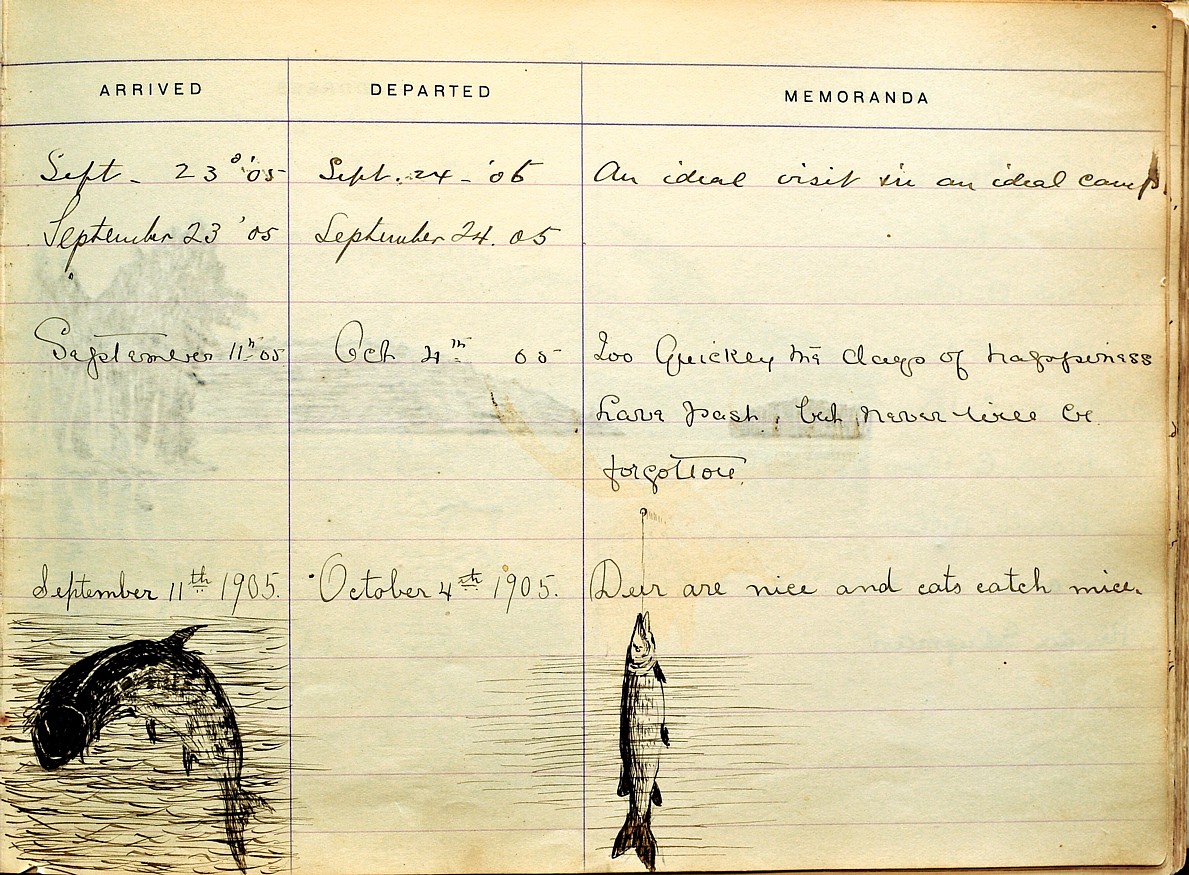 ARRIVED DEPARTED MEMORANDA
Sept - 23 '05 Sept. 24 - '06 An ideal visit in an ideal camp.
September 23 '05 September 24. 05
September 11th 05 Oct 4th 05 Too Quickly the days of happiness
have past, but never will be
forgotton.
September 11th 1905. October 4th 1905. Deer are nice and cats catch mice.